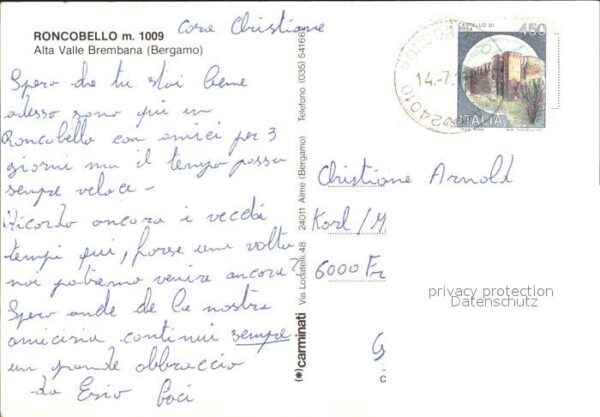 RONCOBELLO m. 1009
Alta Valle Brembana (Bergamo)
care Christiane
Spero che tu stai bene
adesso sono qui in
Roncobello con amici per 3
giorni ma il tempo passa
sempre veloce -
Ricordo ancora i vecchi
tempi qui, forse una volta
noi potiamo venire ancora?
Spero anche de la nostra
amicizia continui sempre
un grande abbraccio
da Ezio
(*)carminati Via Locatelli, 48 24011 Alme (Bergamo) Telefono (035) 54166
CASTELLO DI
450
ITALIA
24010
14.-7.
Christiane Arnold
Karl/M
6000 Fr
privacy protection
Datenschutz